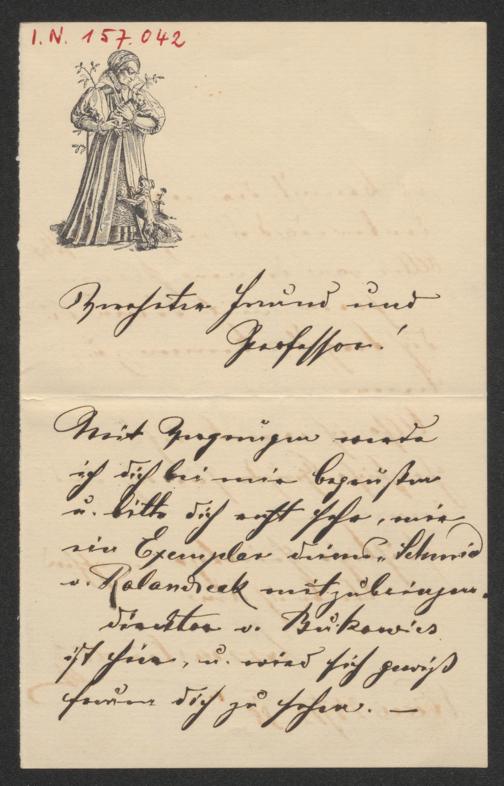 I. N. 157.042
Verehrter Freund und
Professor!
Mit Vergnügen werde
ich dich bei mir begrüßen
u. bitte dich recht sehr, mir
ein Exemplar deines „Schmied
v. Rolandseck mitzubringen.
Direktor v. Bukovics
ist hier, u. wird sich gewiß
freuen dich zu sehen. —